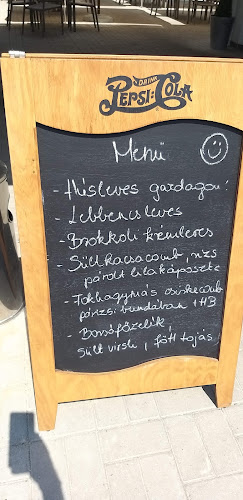 DRINK
PEPSI:COLA
Menü
- Húsleves gazdagon!
- Lebbencsleves
- Brokkoli krémleves
- Sültkacsacomb, rizs
párolt lilakáposzta
- Tokhagymás csirkecomb
párizsi bundában +HB
- Borsófőzelék,
Sült virsli, főtt tojás